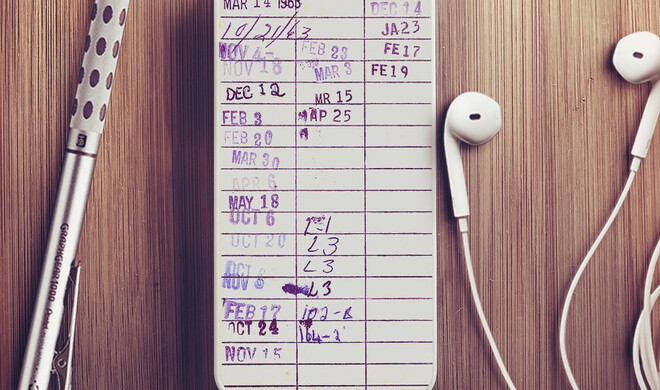 MAR 14 1963
10/21/63
NOV 4-
NOV 18
DEC 12
FEB 3
FEB 20
MAR 30
APR 6
MAY 18
OCT 6
OCT 20
OCT
NOV 8
FEB 17
OCT 24
NOV 15
FEB 23
MAR 3
MR 15
AP 25
L3
L3
L3
102-B
104-2
DEC 14
JA 23
FE 17
FE 19
GRAPHGEAR 1000